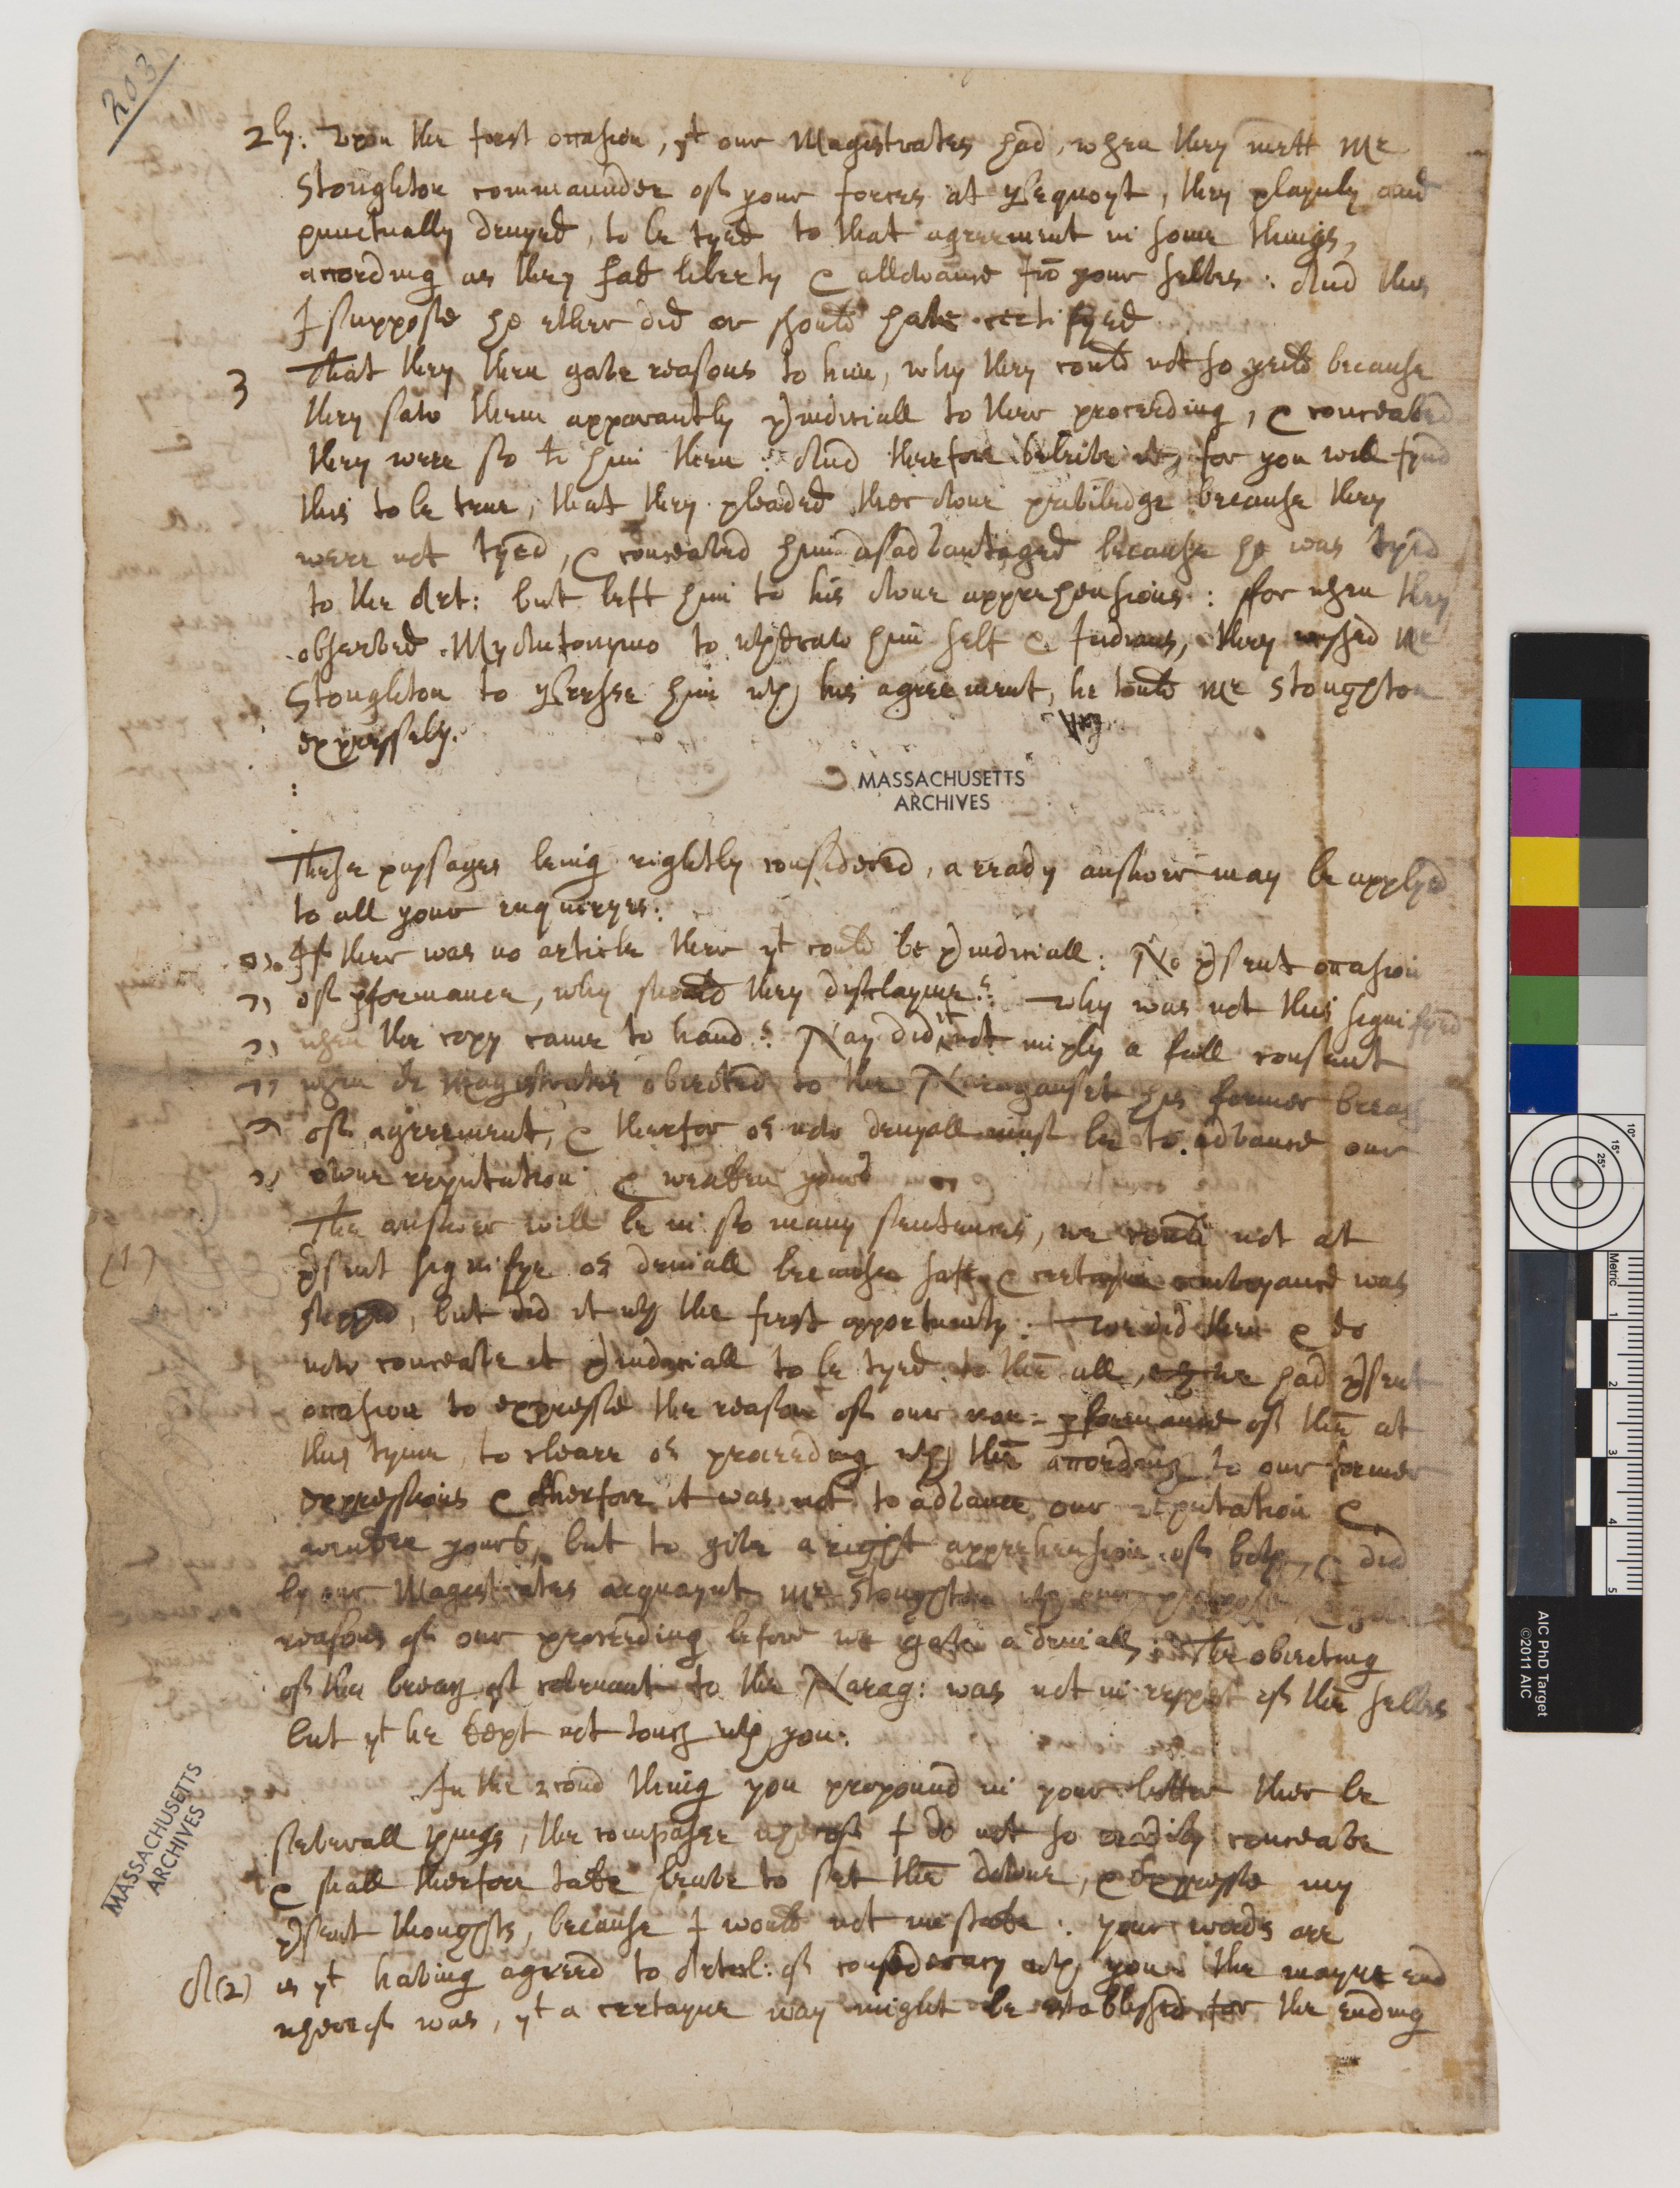 203
2ly: Vpon the first occasion, yt our Magistrates had, when they mett Mr
Stoughton commaunder of your forces at Pequoyt, they playnly and
punctually denyed, to be tyed to that agreement in some things,
according as they had liberty & allowance frō your selves: And this
I suppose he ether did or should have certifyed
3 That they then gave reasons to him, why they could not so yeild because
they saw them apparantly pjudiciall to ther proceeding, & conceaved
they were so to him then: And therfore beleive it, for you will fynd
this to be true, that they pleaded ther owne priviledge because they
were not tyed, & conceaved him disadvantaged because he was tyed
to the Art: but left him to his owne apprehensions: for when they
observed Myantonymo to wthdraw him self & Indians, they wished Mr
Stoughton to presse him wth his agreement, he tould Mr Stoughton
expressely.
MASSACHUSETTS
ARCHIVES
These passages being rightly considered, a ready answer may be applyed
to all your enquiryes:
If ther was no article ther yt could be pjudiciall: No psent occasion
of pformance, why should they disclayme? why was not this signifyed
when the copy came to hand? Nay did it not imply a full consent
when the Magistrates obiected to the Naraganset his former breach
of agreement, & therfor or now denyall must be to advance our
owne reputation & weaken yours
(1) The answer will be in so many sentences, we could not at
psent signifye or deniall because safe & certayne conveyance was
stopped, but did it wth the first opportunity: We did then & do
now conceave it pjudiciall to be tyed to thē all, we had psent
occasion to expresse the reason of our non-pformance of thē at
this tyme, to cleare or proceeding wth thē according to our former
expressions & therfore it was not to advance our reputation &
weaken yours, but to give a right apprehension of both, & did
by our Magistrates acquaynt Mr Stoughton wth our purpose,
reasons of our proceeding before we gave a deniall: The obiecting
of the breach of covenant to the Narag: was not in respect of thē selves
but yt he kept not touch wth you:
In the 2cond thing you propound in your letter ther be
severall things, the compasse wherof I do not so readily conceave
& shall therfore take leave to set thē downe, & expresse my
psent thoughts, because I would not mistake: your words are
A(2) is yt having agreed to Articl: of confederacy wth you the mayne end
wherof was, yt a certayne way might be established for the ending
MASSACHUSETTS
ARCHIVES